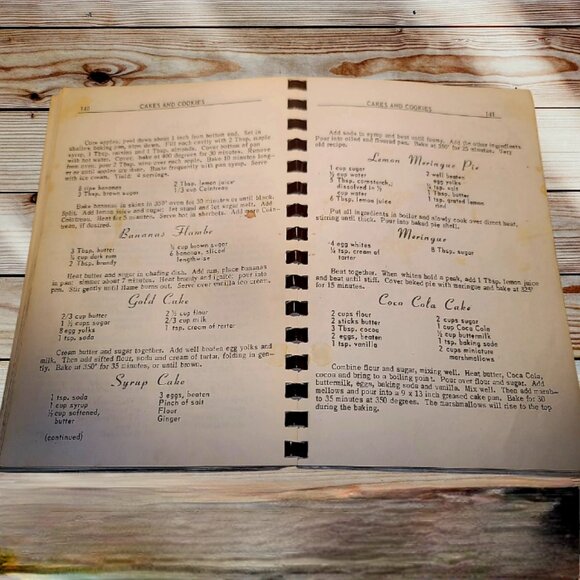 140
CAKES AND COOKIES
Core apples, peel down about 1 inch from bottom end. Set in
shallow baking pan, stem down. Fill each cavity with 2 Tbsp. maple
syrup, 1 Tbsp. raisins and 1 Tbsp. almonds. Cover bottom of pan
with hot water. Cover, bake at 400 degrees for 30 minutes. Remove
from oven; pour 2 Tbsp. wine over each apple. Bake 10 minutes long-
er or until apples are done. Baste frequently with pan syrup. Serve
with ice cream. Yield: 4 servings.
6 ripe bananas
3 Tbsp. brown sugar
2 Tbsp. lemon juice
1/3 cup Cointreau
Bake bananas in skins in 350° oven for 30 minutes or until black.
Split. Add lemon juice and sugar; let stand and let sugar melt. Add
Cointreau. Heat for 5 minutes. Serve hot in sherbets. Add more Coin-
treau, if desired.
Bananas Flambe
3 Tbsp. butter
½ cup dark rum
2 Tbsp. brandy
½ cup brown sugar
6 bananas, sliced
lengthwise
Heat butter and sugar in chafing dish. Add rum, place bananas
in pan; simmer about 7 minutes. Heat brandy and ignite; pour into
pan. Stir gently until flame burns out. Serve over vanilla ice cream.
Gold Cake
2/3 cup butter
1 ½ cups sugar
8 egg yolks
1 tsp. soda
2 ½ cup flour
2/3 cup milk
1 tsp. cream of tartar
Cream butter and sugar together. Add well beaten egg yolks and
milk. Then add sifted flour, soda and cream of tartar, folding in gen-
tly. Bake at 350° for 35 minutes, or until brown.
Syrup Cake
1 tsp. soda
1 cup syrup
½ cup softened,
butter
3 eggs, beaten
Pinch of salt
Flour
Ginger
(continued)
CAKES AND COOKIES
141
Add soda in syrup and beat until foamy. Add the other ingredients
Pour into oiled and floured pan. Bake at 350° for 25 minutes. Very
old recipe.
Lemon Meringue Pie
1 cup sugar
½ cup water
3 Tbsp. cornstarch,
dissolved in ½
cup water
6 Tbsp. lemon juice
2 well beaten
egg yolks
¼ tsp. salt
1 Tbsp. butter
1 tsp. grated lemon
rind
Put all ingredients in boiler and slowly cook over direct heat,
stirring until thick. Pour into baked pie shell.
Meringue
4 egg whites
¼ tsp. cream of
tartar
8 Tbsp. sugar
Beat together. When whites hold a peak, add 1 Tbsp. lemon juice
and beat until stiff. Cover baked pie with meringue and bake at 325°
for 15 minutes.
Coca Cola Cake
2 cups flour
2 sticks butter
3 Tbsp. cocoa
2 eggs, beaten
1 tsp. vanilla
2 cups sugar
1 cup Coca Cola
½ cup buttermilk
1 tsp. baking soda
2 cups miniature
marshmallows
Combine flour and sugar, mixing well. Heat butter, Coca Cola,
cocoa and bring to a boiling point. Pour over flour and sugar. Add
buttermilk, eggs, baking soda and vanilla. Mix well. Then add marsh-
mellows and pour into a 9 x 13 inch greased cake pan. Bake for 30
to 35 minutes at 350 degrees. The marshmallows will rise to the top
during the baking.